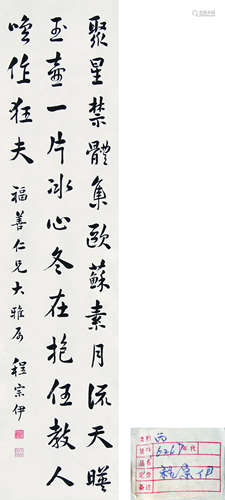 聚星禁體集歐蘇素月流天暎
玉壺一片冰心冬在抱任教人
喚作狂夫 福善仁兄大雅屬 程宗伊
丙